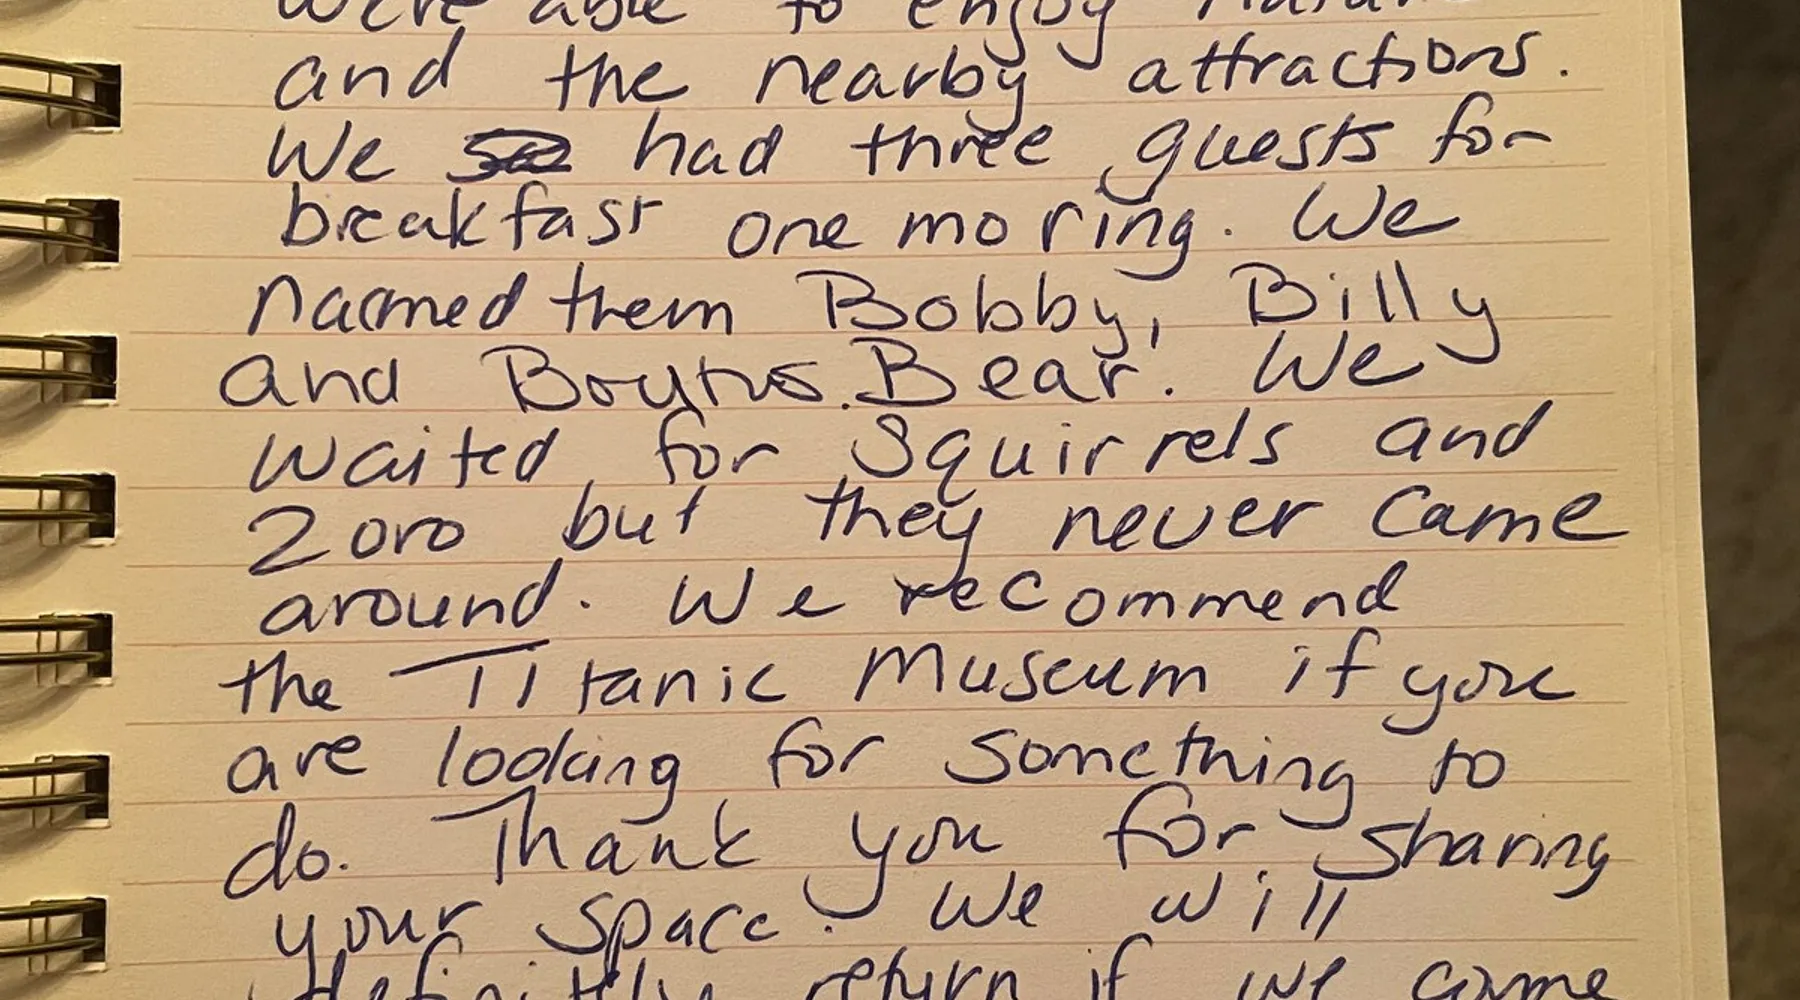 were able to enjoy
and the nearby attractions.
We had three guests for
breakfast one moring. We
named them Bobby, Billy
and Bear. We
waited for Squirrels and
Zoro but they never came
around. We recommend
the Titanic Museum if you
are looking for something to
do. Thank you for sharing
your space. We will
definitely return if we come